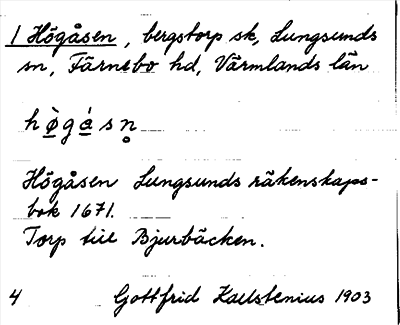 1 Högåsen, bergstorp sk, Lungsunds
sn, Färnebo hd, Värmlands län
hø̀gásn̥
Högåsen Lungsunds räkenskaps-
bok 1671.
Torp till Bjurbäcken.
4 Gottfrid Kallstenius 1903